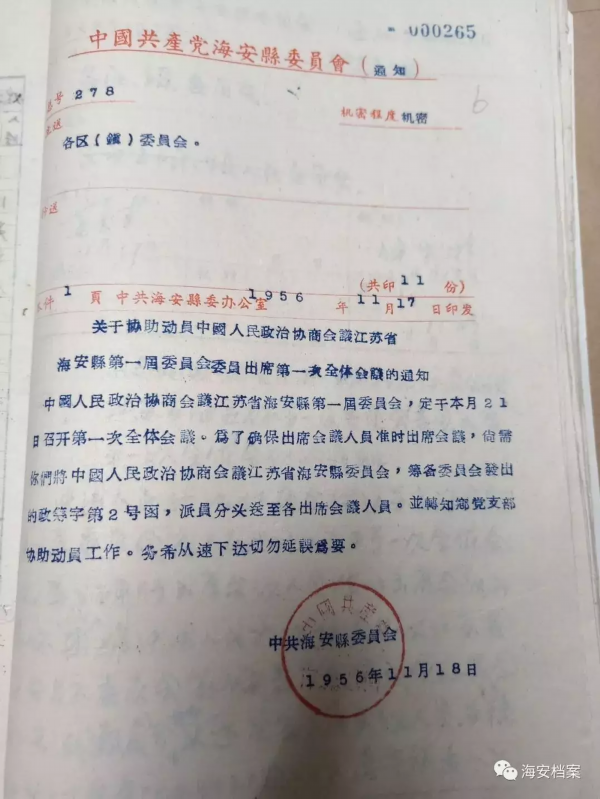 000265
中國共產党海安縣委員會(通知)
号 278
机密程度 机密
送
各区(鎮)委員会。
送
(共印11份)
件 1 頁 中共海安縣委办公室 1956年11月17日印发
关于协助动員中國人民政治协商会議江苏省
海安縣第一届委員会委員出席第一次全体会議的通知
中國人民政治协商会議江苏省海安縣第一届委員会,定于本月21
日召开第一次全体会議。為了确保出席会議人員准时出席会議,尙需
你們將中國人民政治协商会議江苏省海安縣委員会,籌备委員会發出
的政籌字第2号函,派員分头送至各出席会議人員。並轉知鄉党支部
协助动員工作。务希从速下达切勿延誤為要。
中國共產
中共海安縣委員会
1956年11月18日
海安档案